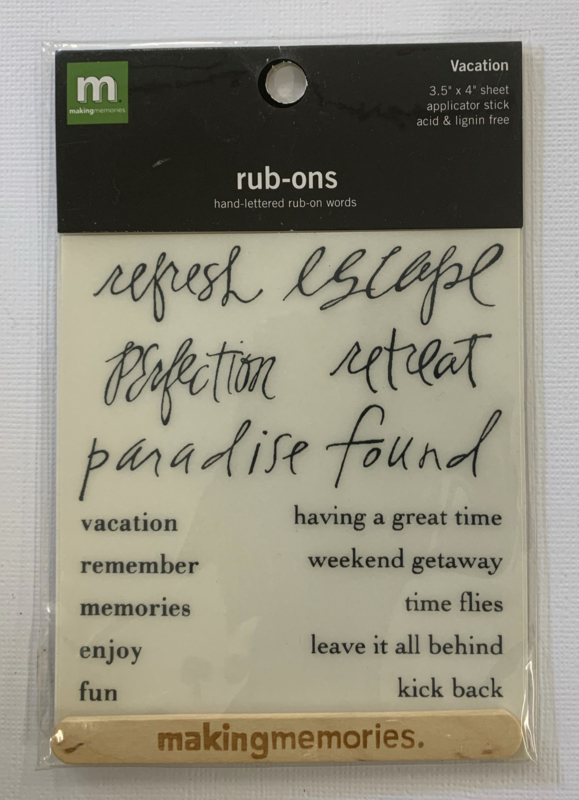 m
makingmemories
Vacation
3.5" x 4" sheet
applicator stick
acid & lignin free
rub-ons
hand-lettered rub-on words
refresh escape
perfection retreat
paradise found
vacation having a great time
remember weekend getaway
memories time flies
enjoy leave it all behind
fun kick back
makingmemories.